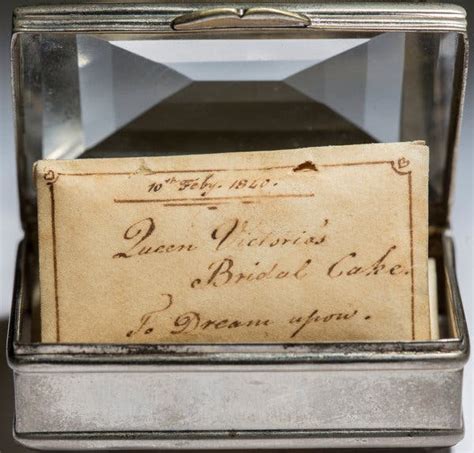 10th Feby. 1840.
Queen Victoria's
Bridal Cake.
To Dream upon.